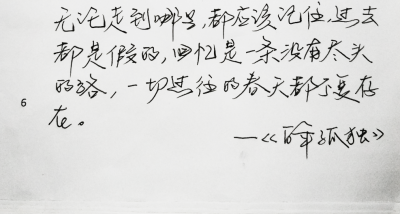 无论走到哪里,都应该记住,过去
都是假的,回忆是一条没有尽头
的路,一切过往的春天都不复存
6
在。
——《百年孤独》